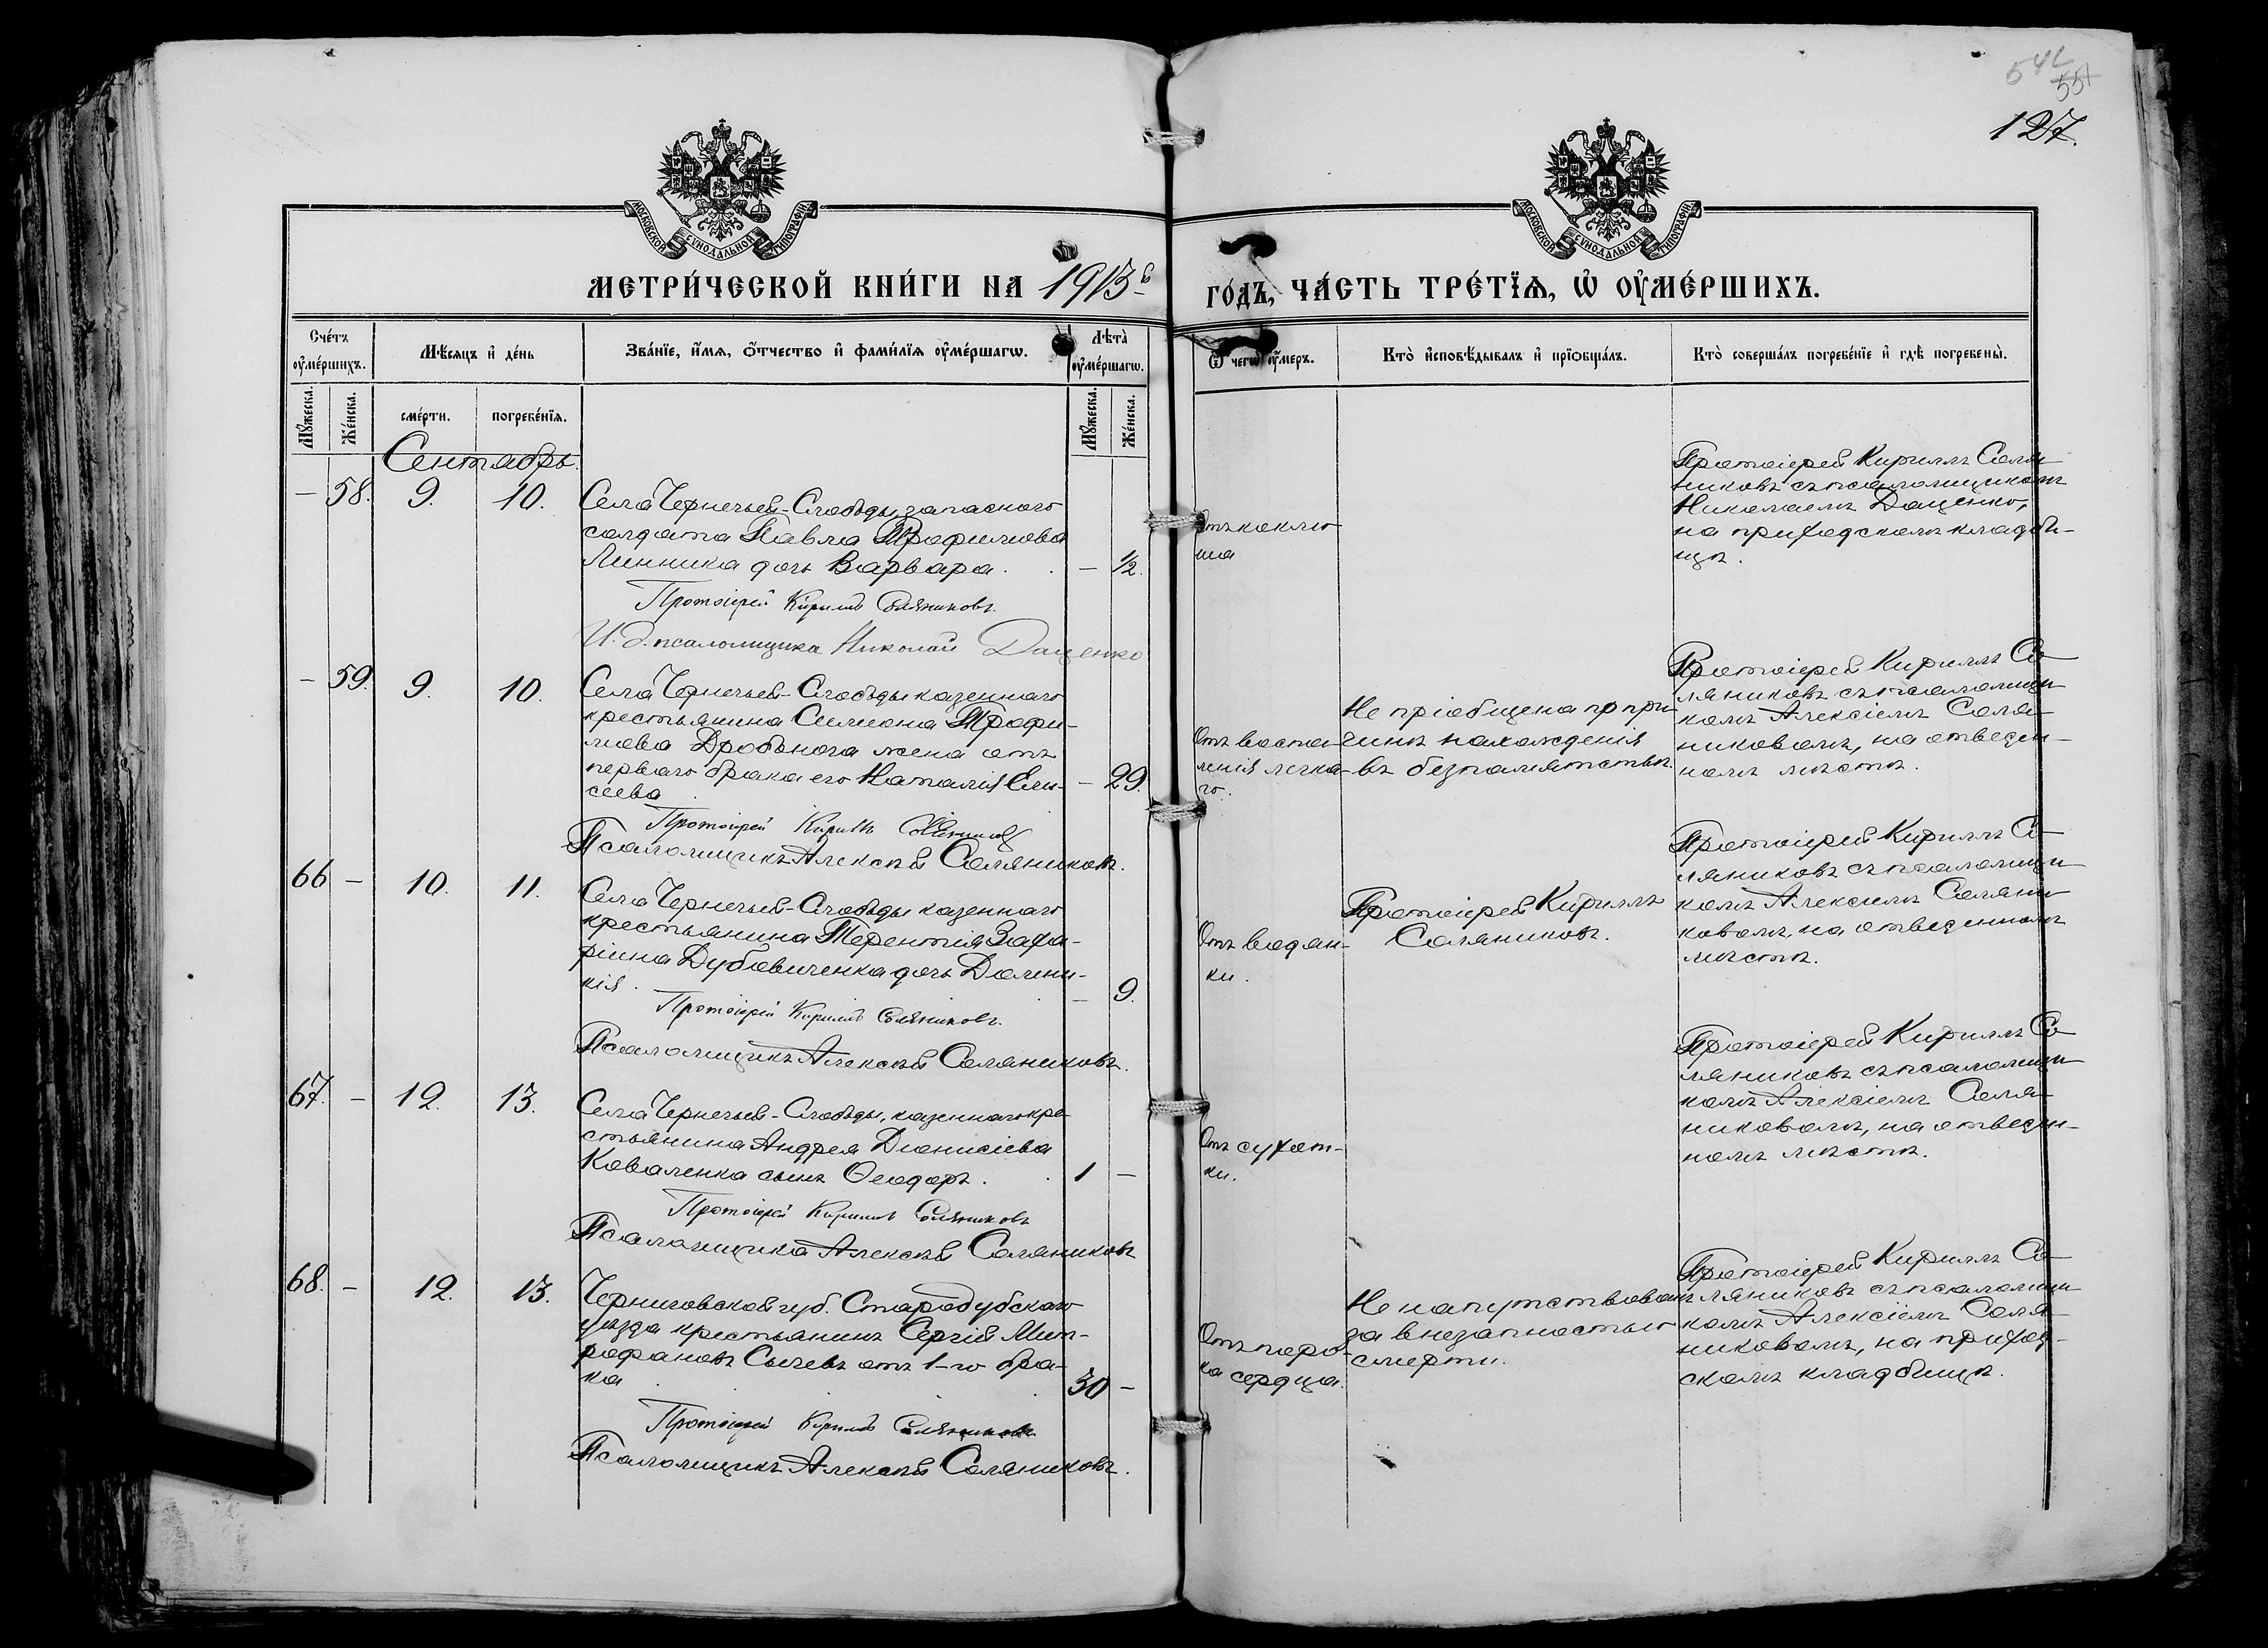 542
551
127.
МОСКОВСКОЙ СѴНОДАЛЬНОЙ ТИПОГРАФІИ
МОСКОВСКОЙ СѴНОДАЛЬНОЙ ТИПОГРАФІИ
МЕТРИ́ЧЕСКОЙ КНИ́ГИ НА 1913 й
ГО́ДЪ, ЧА́СТЬ ТРЕ́ТЇѦ, Ѡ҆ ОУ҆МЕ́РШИХЪ.
Сче́тъ оу҆ме́ршихъ.
Мѣ́сяцъ и҆ де́нь
Зва́нїе, и҆́мѧ, ѻ҆́тчество и҆ фами́лїѧ оу҆ме́ршагѡ.
Лѣ́та оу҆ме́ршагѡ.
Ѿ чегѡ̀ оу҆́меръ.
Кто̀ и҆сповѣ́дывалъ и҆ прїѻбща́лъ.
Кто̀ соверша́лъ погребе́нїе и҆ гдѣ̀ погребены̀.
Мꙋ́жеска.
Же́нска.
сме́рти.
погребе́нїѧ.
Мꙋ́жеска.
Же́нска.
Сентябрь.
– 58. 9. 10.
Села Чернечьей-Слободы, запасного
солдата Павла Трофимова
Линника дочь Варвара. – 1/2.
Протоіерей Кириллъ Соляниковъ.
И. д. псаломщика Николай Даценко
Отъ коклю
ша
Протоіерей Кириллъ Соля
никовъ съ псаломщикомъ
Николаемъ Даценко,
на приходскомъ кладби-
щѣ.
– 59. 9. 10.
Села Чернечьей-Слободы казеннаго
крестьянина Симеона Трофи-
мова Дробьнога жена отъ
перваго брака его Наталія Ели-
сеева – 29.
Протоіерей Кириллъ Соляниковъ
Псаломщикъ Алексѣй Соляниковъ.
Отъ воспа-
ленія легка-
го.
Не пріобщена по при
чинѣ нахожденія
въ безпамятствѣ.
Протоіерей Кириллъ Со-
ляниковъ съ псаломщи
комъ Алексіемъ Соля-
никовомъ, на отведен-
номъ мѣстѣ.
66 – 10. 11.
Села Чернечьей-Слободы казеннаго
крестьянина Терентія Заха-
ріина Дубовиченка дочь Домни-
кія. – 9.
Протоіерей Кириллъ Соляниковъ.
Псаломщикъ Алексѣй Соляниковъ.
Отъ водян-
ки.
Протоіерей Кириллъ
Соляниковъ.
Протоіерей Кириллъ Со-
ляниковъ съ псаломщи
комъ Алексіемъ Соляни
ковомъ, на отведенномъ
мѣстѣ.
67. – 12. 13.
Села Чернечьей-Слободы, казеннаго кре-
стьянина Андрея Діонисіева
Коваленка сынъ Ѳеодоръ. 1 –
Протоіерей Кириллъ Соляниковъ
Псаломщика Алексѣй Соляниковъ
Отъ сухот-
ки.
Протоіерей Кириллъ Со-
ляниковъ съ псаломщи
комъ Алексіемъ Соля-
никовомъ, на отведен-
номъ мѣстѣ.
68. – 12. 13.
Черниговской губ. Стародубскаго
уѣзда крестьянинъ Сергій Мит-
рофановъ Сычевъ отъ 1-го бра-
ка 30 –
Протоіерей Кириллъ Соляниковъ
Псаломщикъ Алексѣй Соляниковъ.
Отъ поро-
ка сердца.
Не напутствованъ
за внезапностью
смерти.
Протоіерей Кириллъ Со-
ляниковъ съ псаломщи
комъ Алексіемъ Соля-
никовомъ, на приход-
скомъ кладбищѣ.